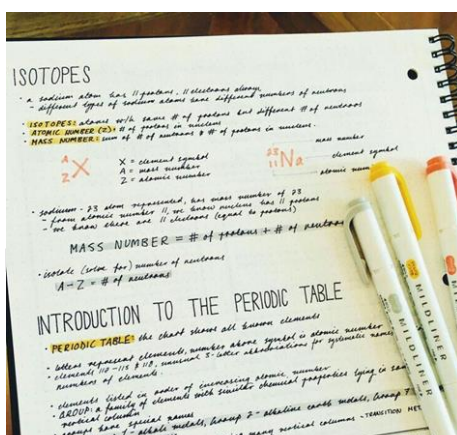 ISOTOPES
- a sodium atom has 11 protons, 11 electrons always
- different types of sodium atoms have different numbers of neutrons
- ISOTOPES: atoms with same # of protons but different # of neutrons
- ATOMIC NUMBER (Z): # of protons in nucleus
- MASS NUMBER: sum of # of neutrons & # of protons in nucleus.
A
Z X
X = element symbol
A = mass number
Z = atomic number
23
11 Na
mass number
element symbol
atomic num
- sodium-23 atom represented, has mass number of 23
- from atomic number 11, we know nucleus has 11 protons
- we know there are 11 electrons (equal to protons)
MASS NUMBER = # of protons + # of neutrons
- isolate (solve for) number of neutrons
A-Z = # of neutrons
INTRODUCTION TO THE PERIODIC TABLE
- PERIODIC TABLE: the chart shows all known elements
- letters represent elements, number above symbol is atomic number
- elements 110-115 & 118, unusual 3-letter abbreviations for systematic names
numbers of elements.
- elements listed in order of increasing atomic number
- GROUP: a family of elements with similar chemical properties lying in same
vertical column
- groups have special names
alkali metals, Group 2 - alkaline earth metals, Group 7
many vertical columns - TRANSITION MET
MILDLINER
MILDLINER
MILDLINER